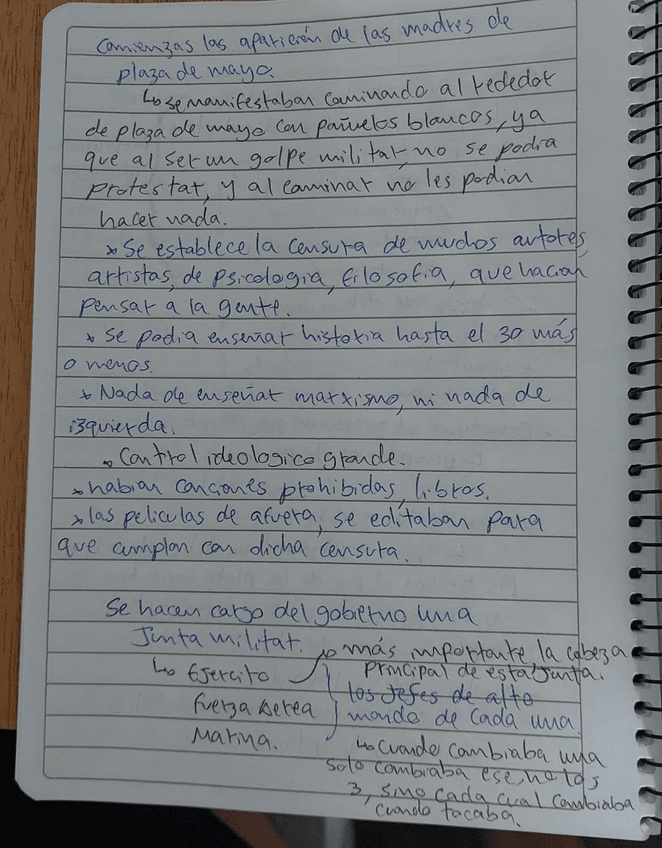 Comienzas las aparición de las madres de
plaza de mayo.
↳ se manifestaban caminando al rededor
de plaza de mayo con pañuelos blancos, ya
que al ser un golpe militar, no se podia
protestar, y al caminar no les podian
hacer nada.
* Se establece la censura de muchos autores,
artistas, de psicologia, filosofia, que hacian
pensar a la gente.
* Se podia enseñar historia hasta el 30 más
o menos.
* Nada de enseñar marxismo, ni nada de
izquierda.
* Control ideologico grande.
* habian canciones prohibidas, libros.
* las peliculas de afuera, se editaban para
que cumplan con dicha censura.
Se hacen cargo del gobierno una
Junta militar.
↳ más importante la cabeza
principal de esta junta.
↳ Ejercito
Fuerza Aerea
Marina.
los jefes de alto
mando de cada una.
↳ Cuando cambiaba una
solo cambiaba ese, no los
3, sino cada cual cambiaba
cuando tocaba.